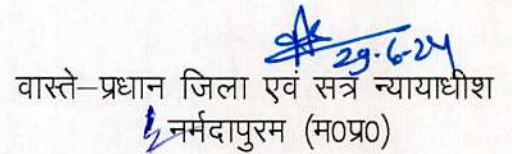 29.6.24
वास्ते–प्रधान जिला एवं सत्र न्यायाधीश
नर्मदापुरम (म०प्र०)